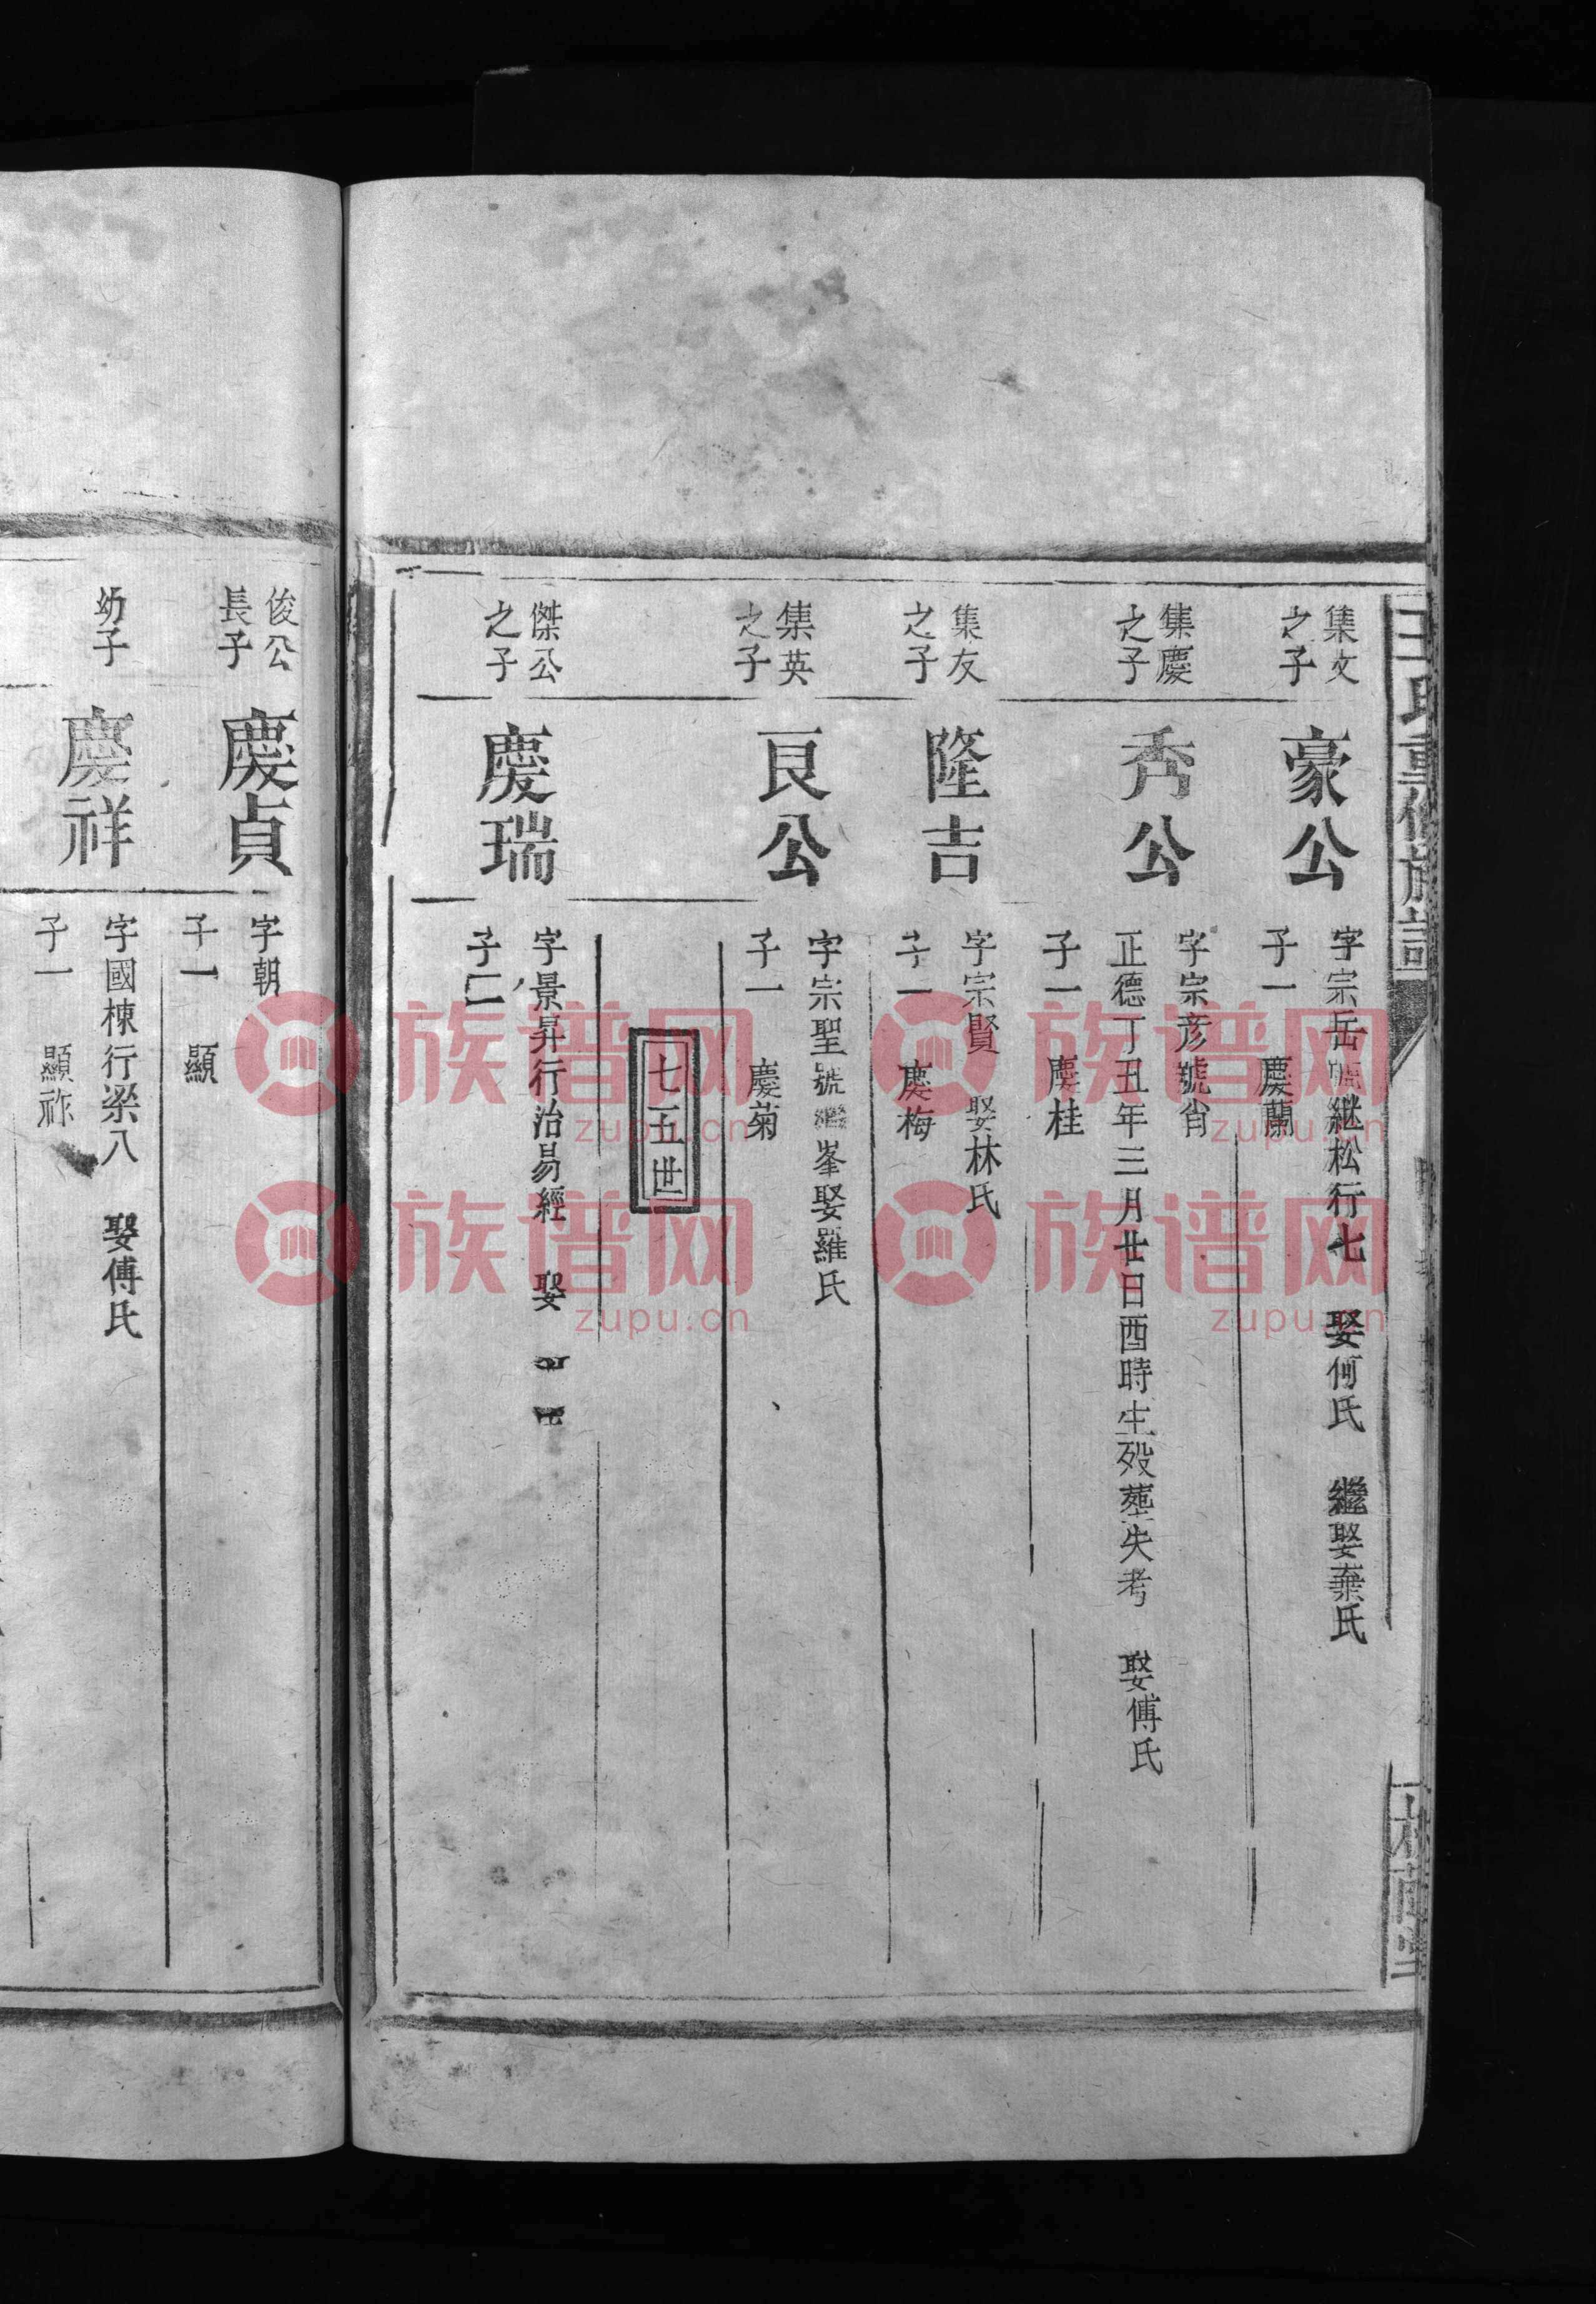 王氏重修族譜
集文
之子
豪公
字宗岳號継松行七 娶何氏 繼娶秦氏
子一 慶蘭
集慶
之子
秀公
字宗彦號肖
正德丁丑年三月廿日酉時生殁塟失考 娶傅氏
子一 慶桂
集友
之子
隆吉
字宗賢 娶林氏
子一 慶梅
集英
之子
良公
字宗聖號繼峯娶羅氏
子一 慶菊
七五世
傑公
之子
慶瑞
字景昇行治易經 娶
子二
俊公
長子
慶貞
字朝
子一 顯
幼子
慶祥
字國棟行梁八 娶傅氏
子一 顯祚
族谱网
zupu.cn
族谱网
zupu.cn
族谱网
zupu.cn
族谱网
zupu.cn